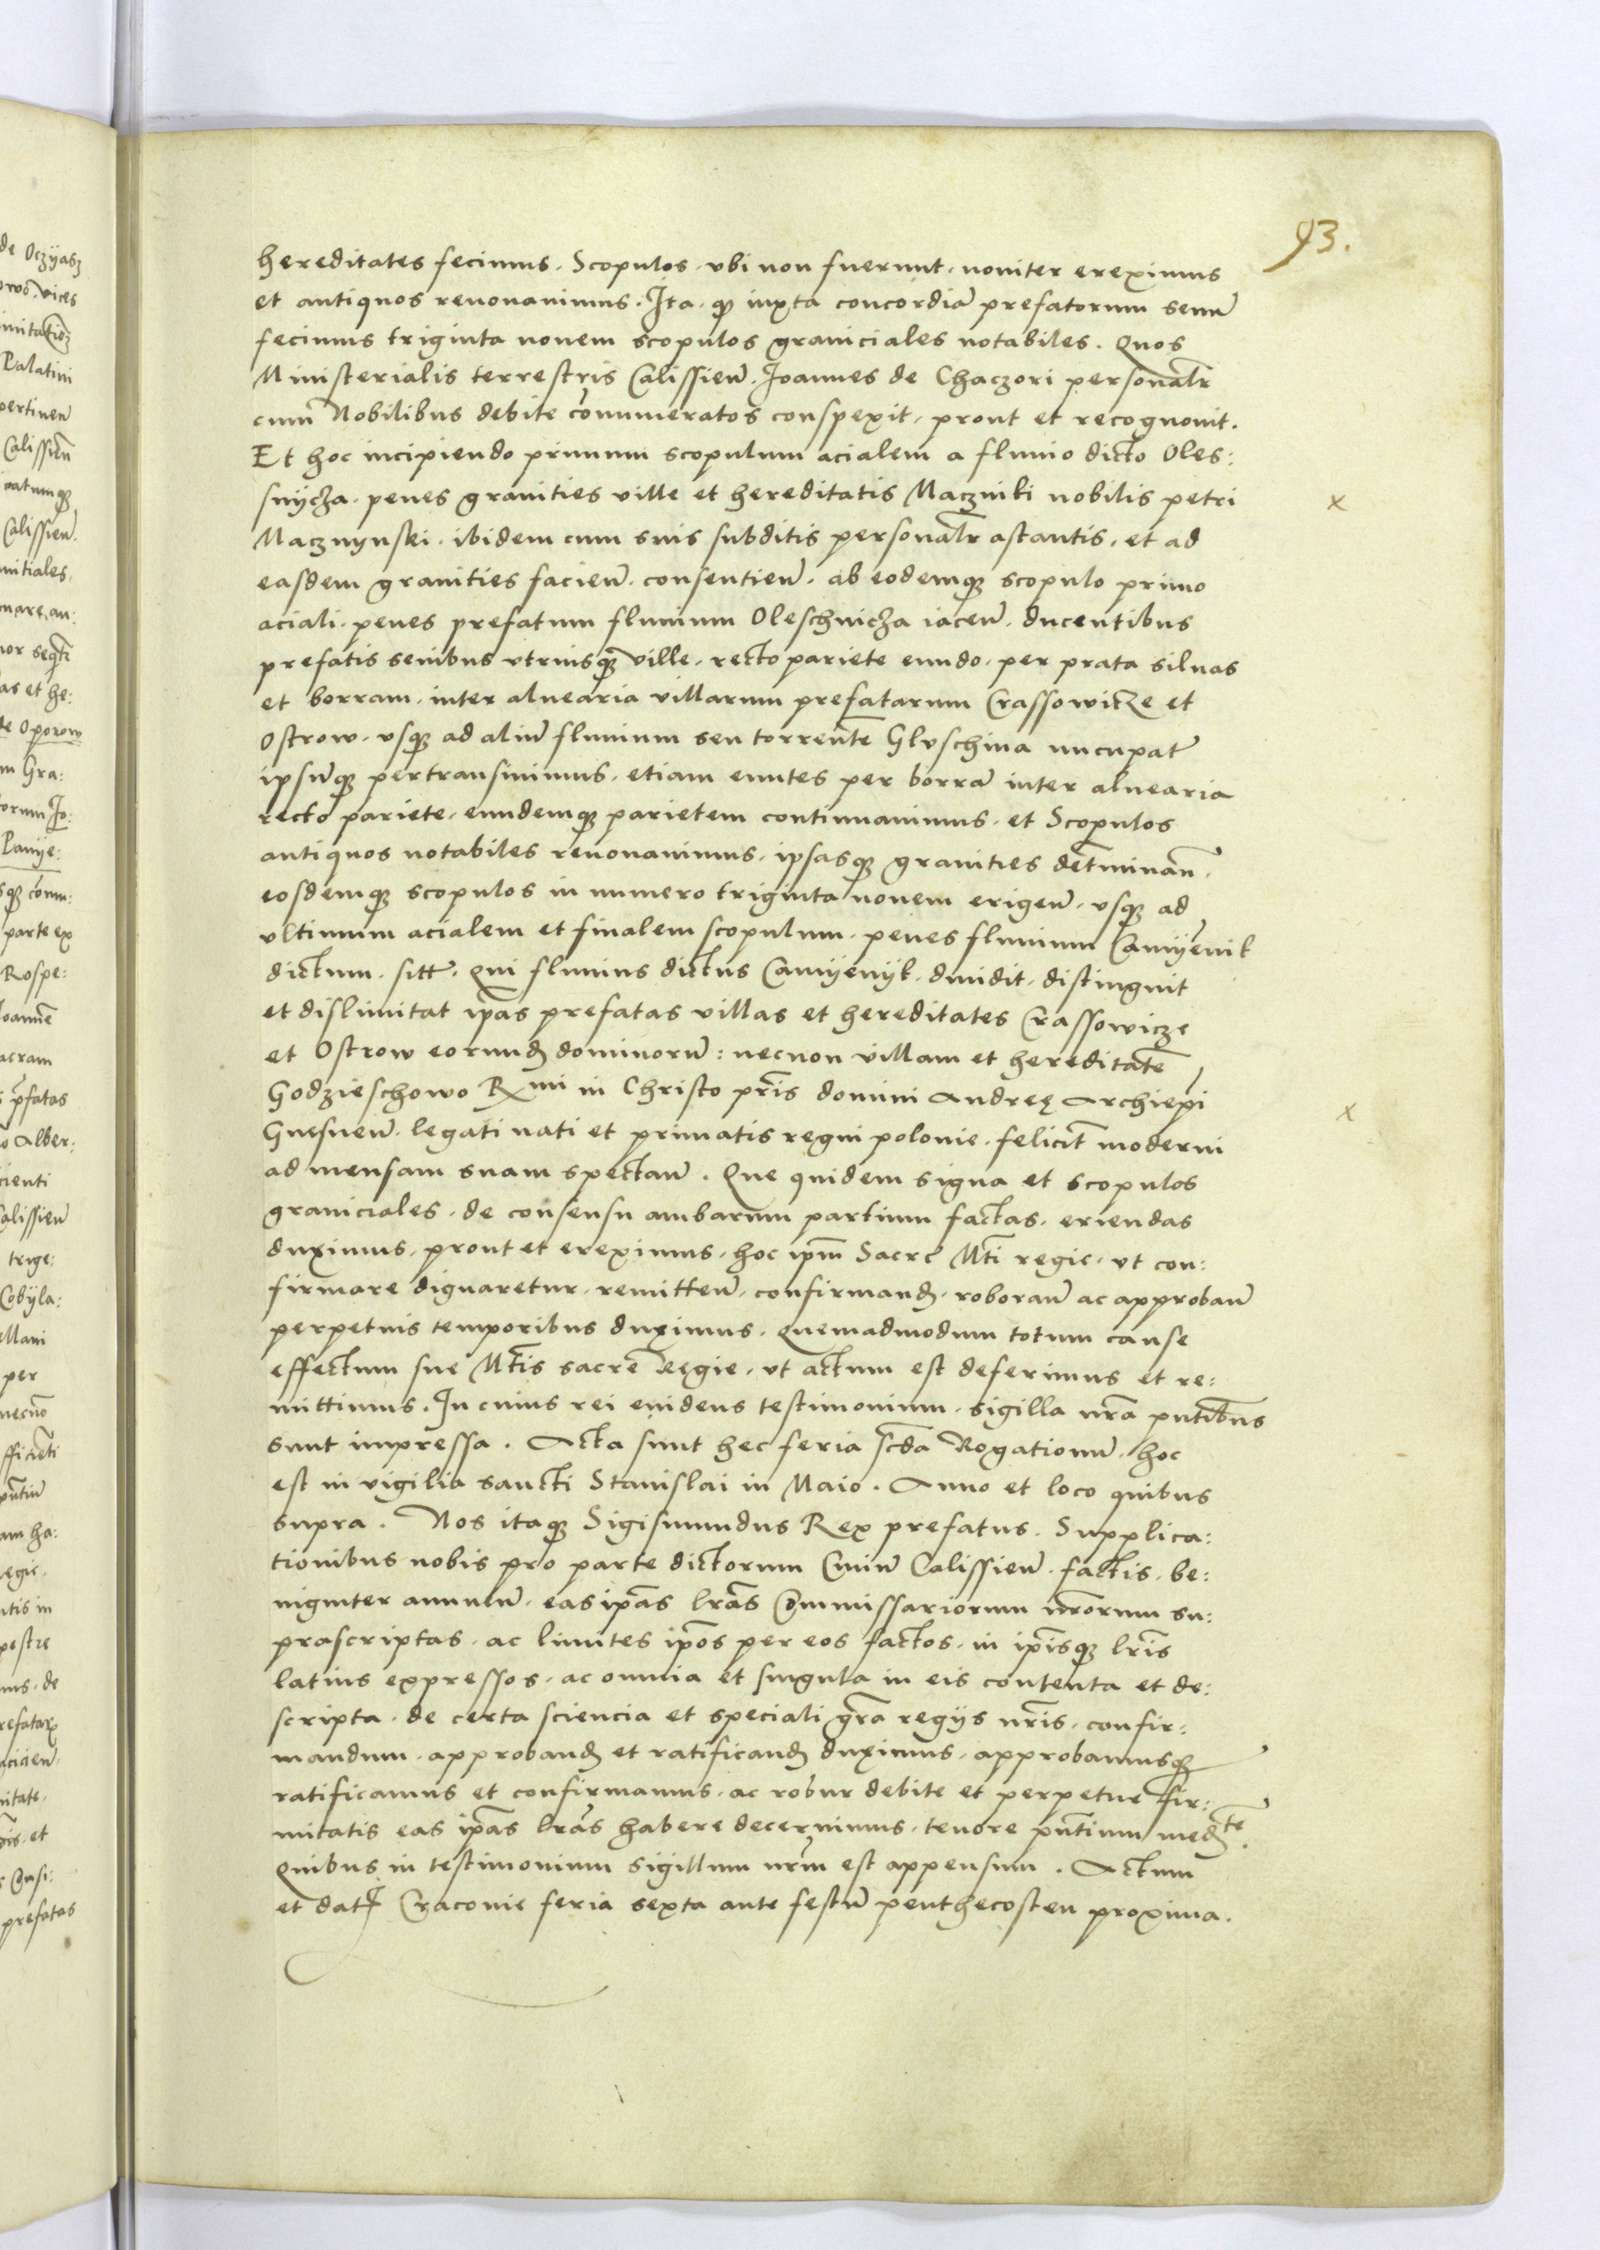 93.
hereditates fecimus. Scopulos. vbi non fuerunt. noviter ereximus
et antiquos renovavimus. Ita. q iuxta concordia prefatorum senu
fecimus triginta novem scopulos graniciales notabiles. Quos
Ministerialis terrestris Calissien. Joannes de Chaczori personalr
cum Nobilibus debite connumeratos conspexit, prout et recognovit.
Et hoc incipiendo primum scopulum acialem a fluvio dicto Oles:
snycza. penes granities ville et hereditatis Maczniki nobilis petri
Macznynski. ibidem cum suis subditis personalr astantis, et ad
easdem granities facien. consentien. ab eodemq scopulo primo
aciali. penes prefatum fluvium Oleschnicza iacen. ducentibus
prefatis senibus vtriusq ville. recto pariete eundo. per prata silvas
et borram. inter alvearia villarum prefatarum Crassowicze et
Ostrow. vsq ad aliu fluvium seu torrente Glvschina nucupat
ipsumq pertransivimus. etiam euntes per borra inter alvearia
recto pariete. eundemq parietem continuavimus. et Scopulos
antiquos notabiles renovavimus. ipsasq granities determinan.
eosdemq scopulos in numero triginta novem erigen. vsq ad
vltimum acialem et finalem scopulum. penes fluvium Camyenik
dictum. sitt. qui fluvius dictus Camyenyk. dividit. distinguit
et dislimitat ipas prefatas villas et hereditates Crassowicze
et Ostrow eorund dominoru: necnon villam et hereditate
Godzieschowo Rmi in Christo pris domini Andreę Archiepi
Gnesnen. legati nati et primatis regni polonie. felicit moderni
ad mensam suam spectan. Que quidem signa et scopulos
graniciales. de consensu ambarum partium factas. eriendas
duximus. prout et ereximus. hoc ipm Sacre Mti regie. vt con:
firmare dignaretur. remitten. confirmand. roboran ac approban
perpetuis temporibus duximus. quemadmodum totum cause
effectum sue Mtis sacre Regie. vt actum est deferimus et re:
mittimus. In cuius rei evidens testimonium. sigilla nra pntibus
sunt impressa. Acta sunt hec feria scda Rogationu. hoc
est in vigilia sancti Stanislai in Maio. Anno et loco quibus
supra. Nos itaq Sigismundus Rex prefatus. Supplica:
tionibus nobis pro parte dictorum Civiu Calissien. factis. be:
nigniter annuen. eas ipas lras Commissariorum nrorum su:
prascriptas. ac limites ipos per eos factos. in ipisq lris
latius expressos. ac omnia et singula in eis contenta et de:
scripta. de certa sciencia et speciali gra regiis nris. confir:
mandum. approband et ratificand duximus. approbamusq
ratificamus et confirmamus. ac robur debite et perpetue fir:
mitatis eas ipas lras habere decernimus. tenore pntium medte.
Quibus in testimonium sigillum nrm est appensum. Actum
et dat Cracovie feria sexta ante festu penthecosten proxima.